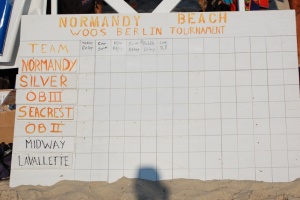 NORMANDY BEACH
WOOS BERLIN TOURNAMENT
TEAM
NORMANDY
SILVER
OB III
SEACREST
OB II
MIDWAY
LAVALLETTE